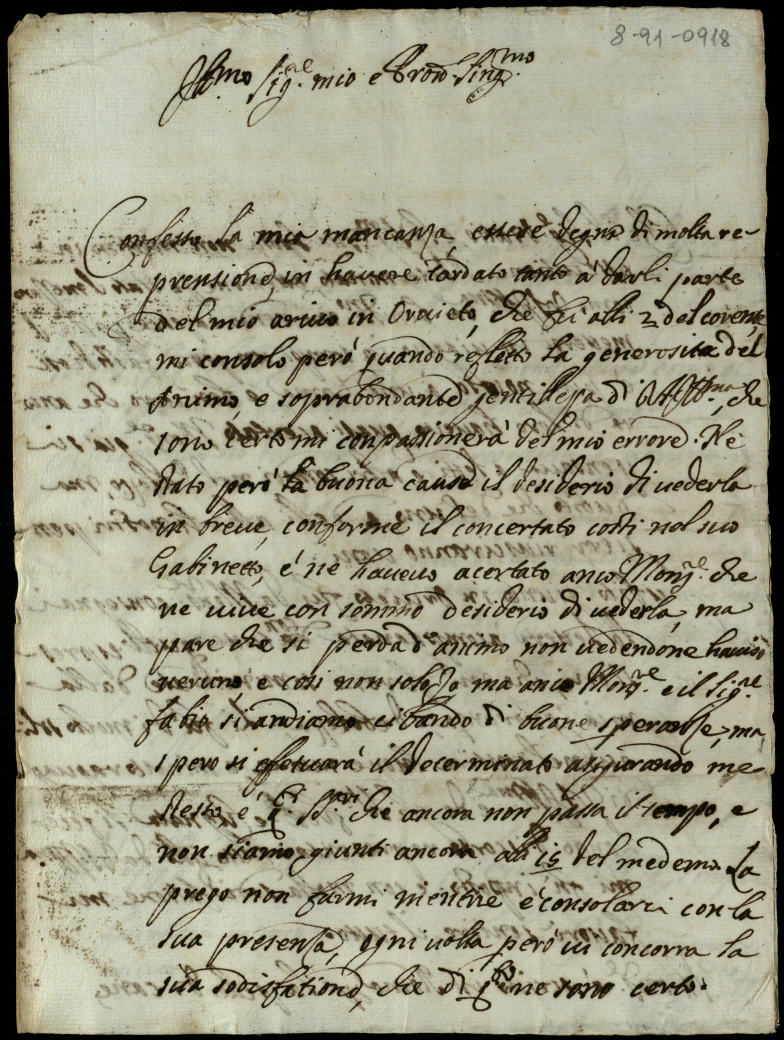 8-91-0918
Ill.mo Sig.re mio e Pron Sing.mo
Confesso la mia mancanza essere degna di molta re-
prensione, in havere tardato tanto a' darli parte
del mio arivo in Orvieto, che fu alli 2 del corente,
mi consolo però quando refletto la generosità del
Animo, e soprabondante gentilleza di V.S. Ill.ma, che
sono certo mi conpassionerà del mio errore. Ne
stato però la buona causa il desiderio di vederla
in breve, conforme il concertato costì nel suo
Gabinetto, e ne havevo acertato anco Mons.re che
ne vive con sommo desiderio di vederla, ma
pare che si perda d'animo non vedendone haviso
veruno, e così non solo Io ma anco Mons.re e il Sig.re
fabio si andiamo cibando di buone speranze, ma
spero si efetuarà il determinato asigurando me
stesso è che ancora non passa il tempo, e
non siamo giunti ancora alli 15 del medemo. La
prego non farmi mentire e consolarci con la
sua presenza, ogni volta però vi concorra la
sua sodisfatione, che di ne sono certo.